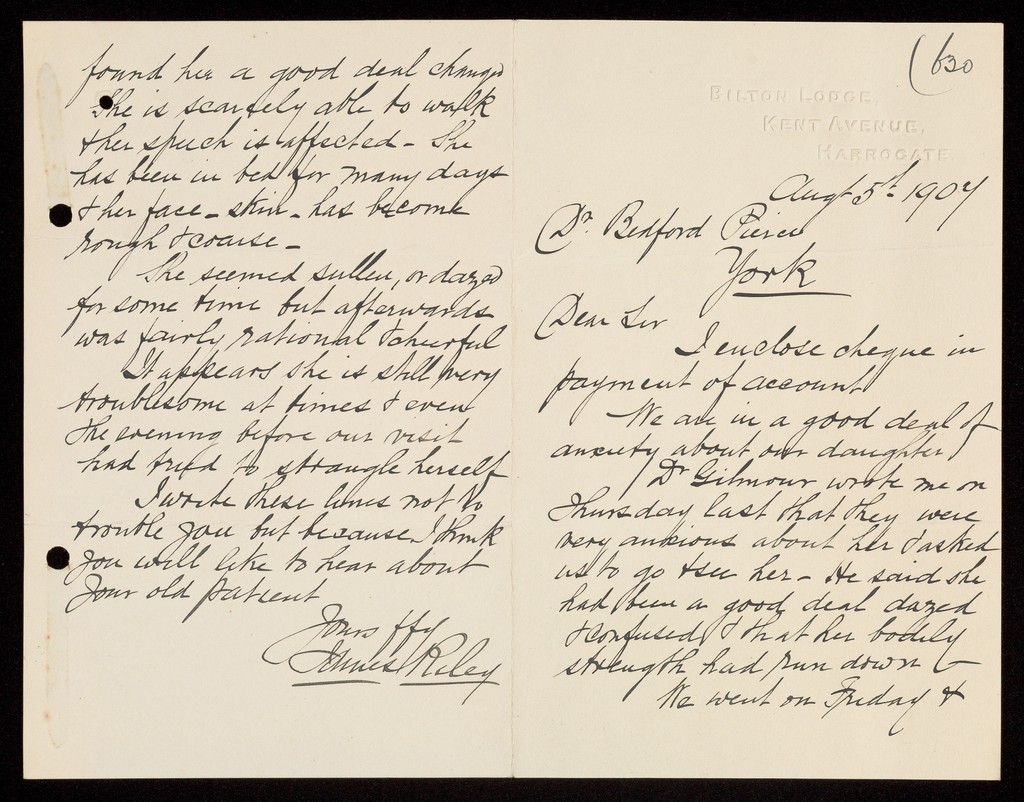 (630
BILTON LODGE,
KENT AVENUE,
HARROGATE.
Augt 5th 1907
Dr. Bedford Pierce
York
Dear Sir
I enclose cheque in
payment of account
We are in a good deal of
anxiety about our daughter
Dr Gilmour wrote me on
Thursday last that they were
very anxious about her & asked
us to go & see her - He said she
had been a good deal dazed
& confused, & that her bodily
strength had run down -
We went on Friday &
found her a good deal changed
She is scarcely able to walk
& her speech is affected - She
has been in bed for many days
& her face - skin - has become
rough & coarse -
She seemed sullen, or dazed
for some time but afterwards
was fairly rational & cheerful
It appears she is still very
troublesome at times & even
the evening before our visit
had tried to strangle herself
I write these lines not to
trouble you but because I think
you will like to hear about
your old patient
Yours ffy
James Riley